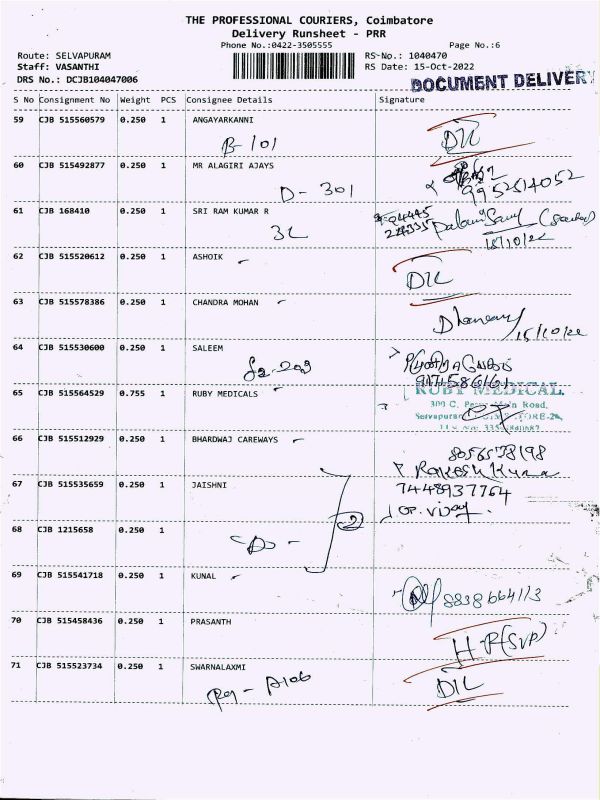 THE PROFESSIONAL COURIERS, Coimbatore
Delivery Runsheet - PRR
Phone No.:0422-3505555 Page No.:6
Route: SELVAPURAM RS-No.: 1040470
Staff: VASANTHI RS Date: 15-Oct-2022
DRS No.: DCJB104047006
DOCUMENT DELIVERY
S No Consignment No Weight PCS Consignee Details Signature
59 CJB 515560579 0.250 1 ANGAYARKANNI
B-101 DIL
60 CJB 515492877 0.250 1 MR ALAGIRI AJAYS
D-301 9952514052
61 CJB 168410 0.250 1 SRI RAM KUMAR R
3L
15/10/22
62 CJB 515520612 0.250 1 ASHOIK
DIL
63 CJB 515578386 0.250 1 CHANDRA MOHAN
15/10/22
64 CJB 515530600 0.250 1 SALEEM
65 CJB 515564529 0.755 1 RUBY MEDICALS
RUBY MEDICAL.
66 CJB 515512929 0.250 1 BHARDWAJ CAREWAYS
8056578198
Rakesh Kumar
67 CJB 515535659 0.250 1 JAISHNI
7448937764
68 CJB 1215658 0.250 1
69 CJB 515541718 0.250 1 KUNAL
8838664113
70 CJB 515458436 0.250 1 PRASANTH
H-R(SVP)
71 CJB 515523734 0.250 1 SWARNALAXMI
A106 DIL